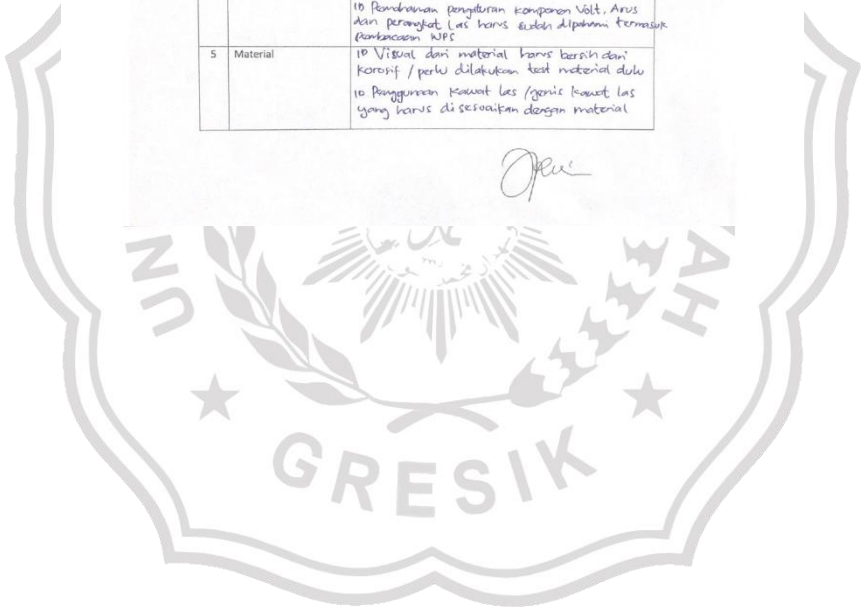 10 Pemahaman pengaturan komponen Volt, Arus
dan perangkat Las harus sudah dipahami termasuk
pembacaan WPS
5 Material
10 Visual dari material harus bersih dari
korosif / perlu dilakukan test material dulu
10 Penggunaan kawat las / jenis kawat las
yang harus disesuaikan dengan material
UN
AH
GRESIK